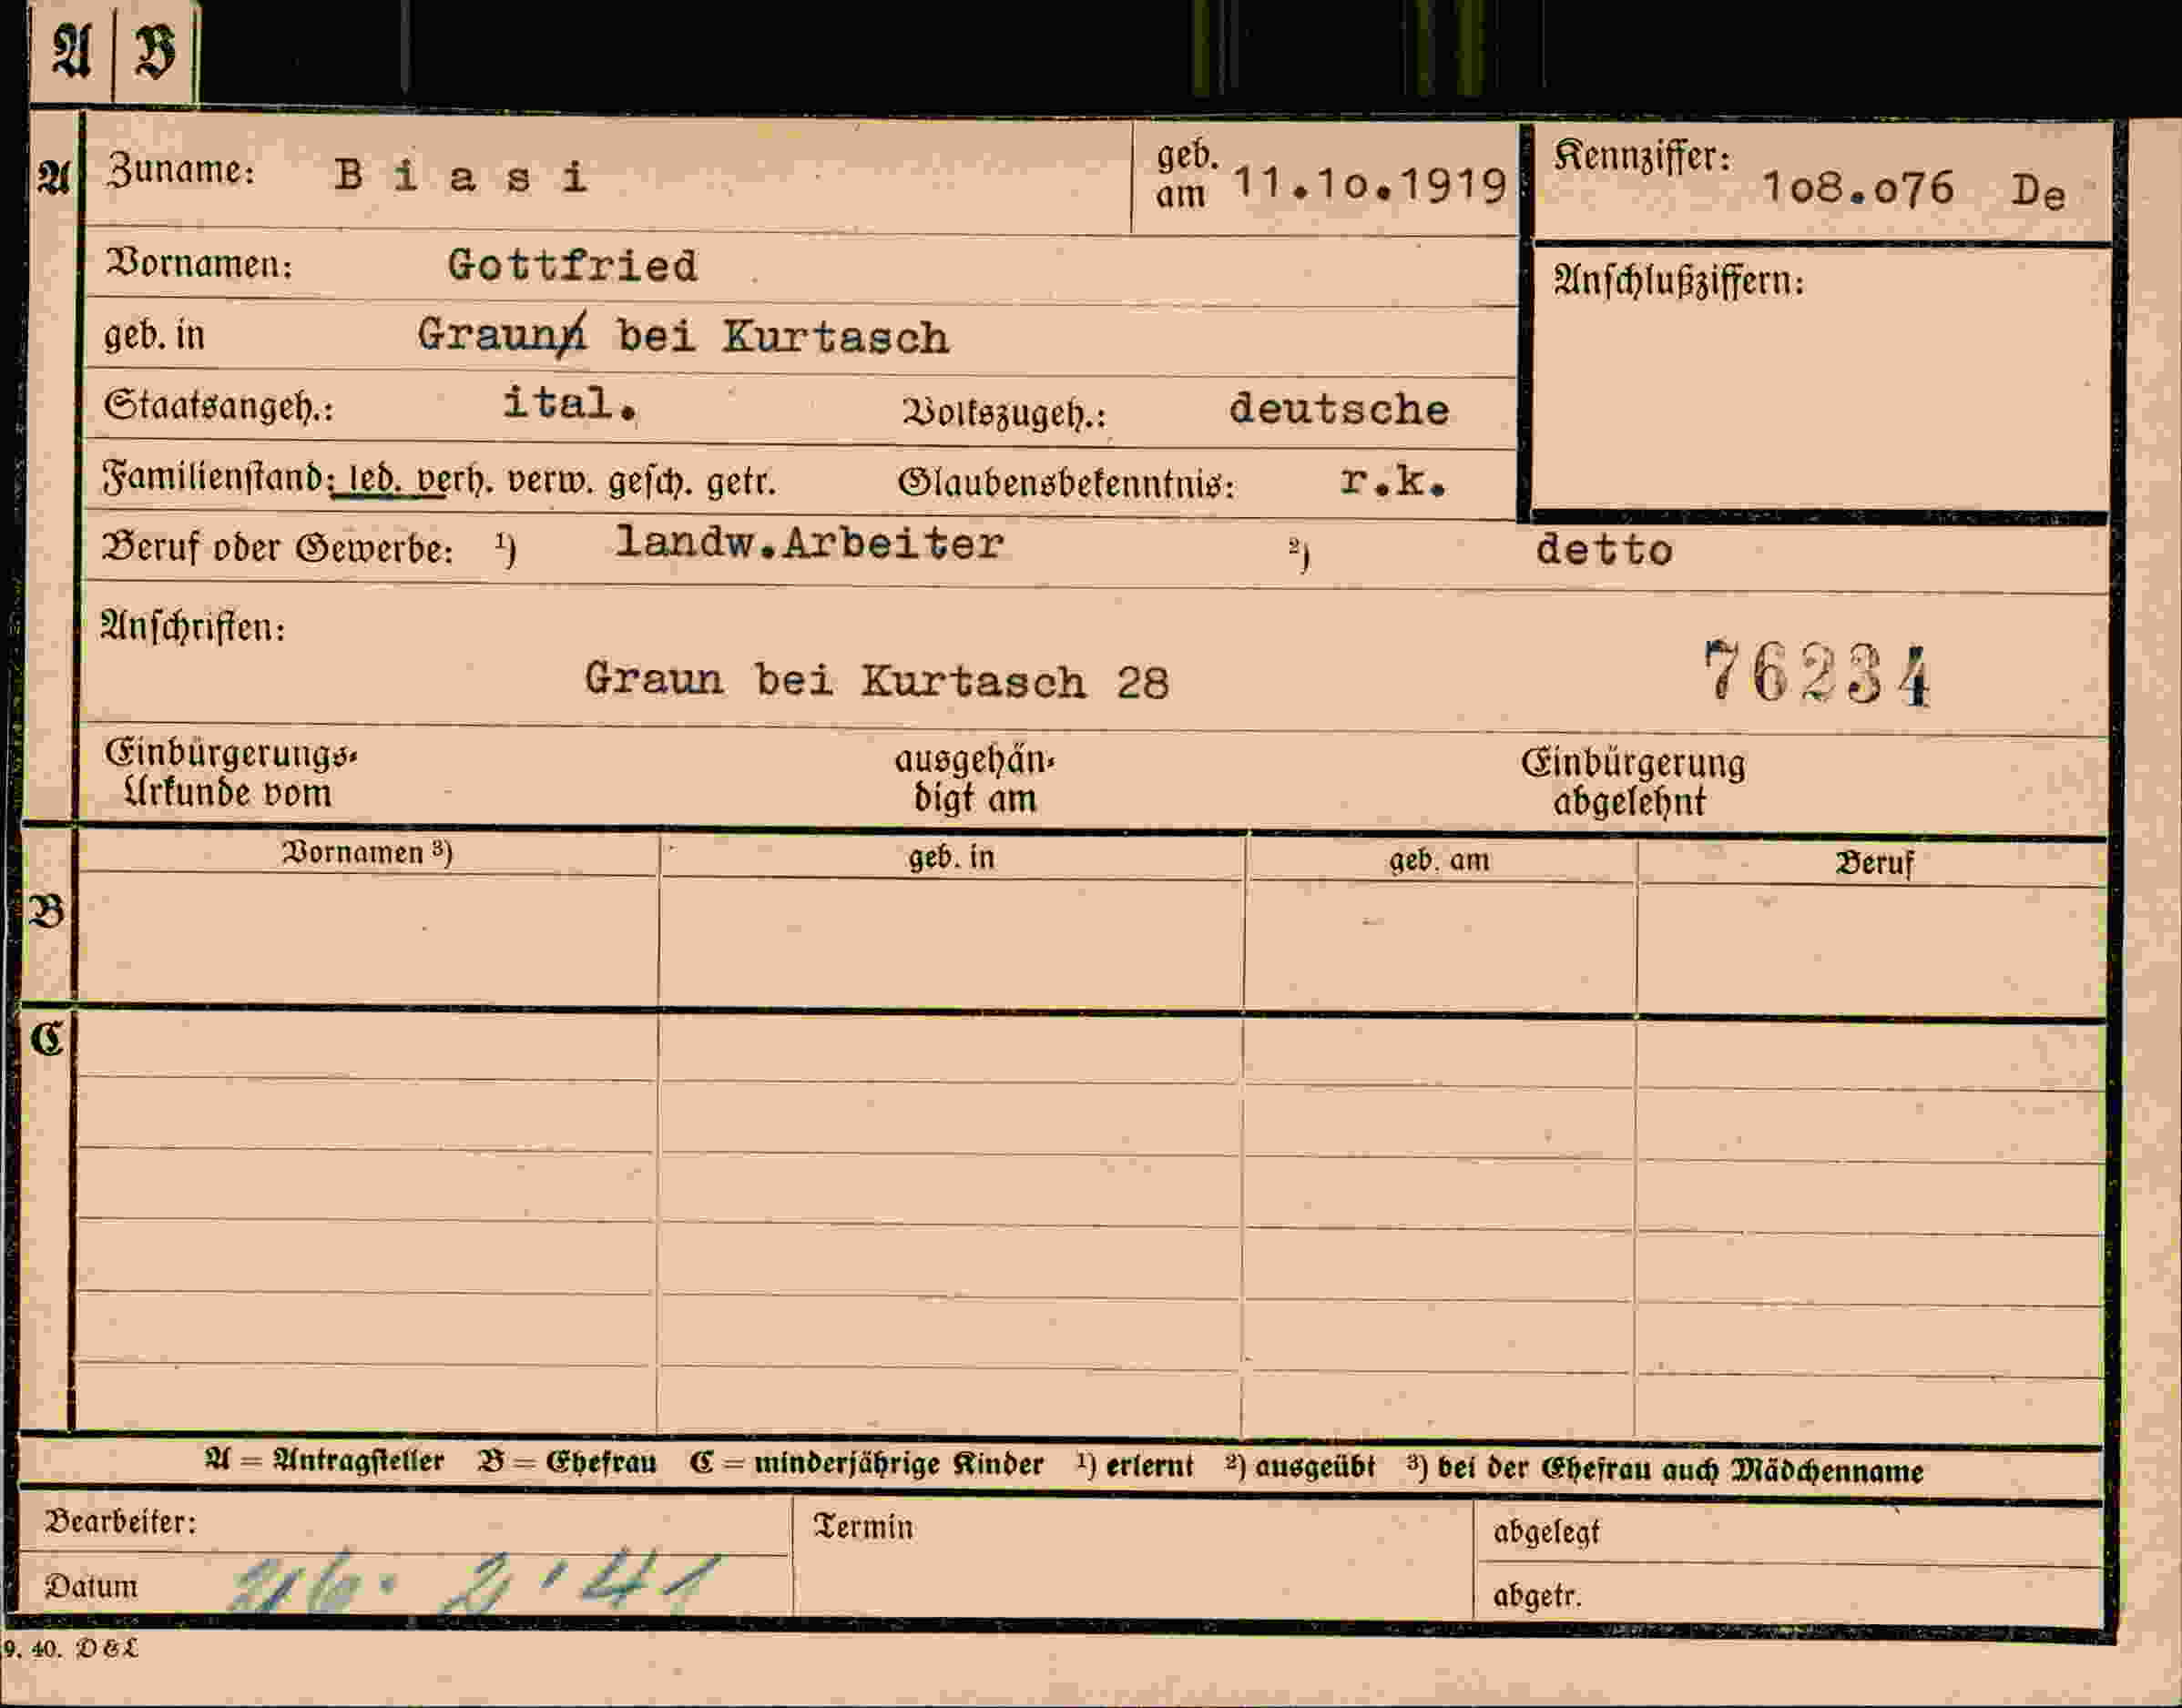 A B
A Zuname: Biasi geb. am 11.10.1919 Kennziffer: 108.076 De
Vornamen: Gottfried Anschlußziffern:
geb. in Graun bei Kurtasch
Staatsangeh.: ital. Volkszugeh.: deutsche
Familienstand: led. verh. verw. gesch. getr. Glaubensbekenntnis: r.k.
Beruf oder Gewerbe: 1) landw.Arbeiter 2) detto
Anschriften:
Graun bei Kurtasch 28 76234
Einbürgerungs- ausgehän- Einbürgerung
Urkunde vom digt am abgelehnt
Vornamen 3) geb. in geb. am Beruf
B
C
A = Antragsteller B = Ehefrau C = minderjährige Kinder 1) erlernt 2) ausgeübt 3) bei der Ehefrau auch Mädchenname
Bearbeiter: Termin abgelegt
Datum 26. 2. 41 abgetr.
9. 40. D & L